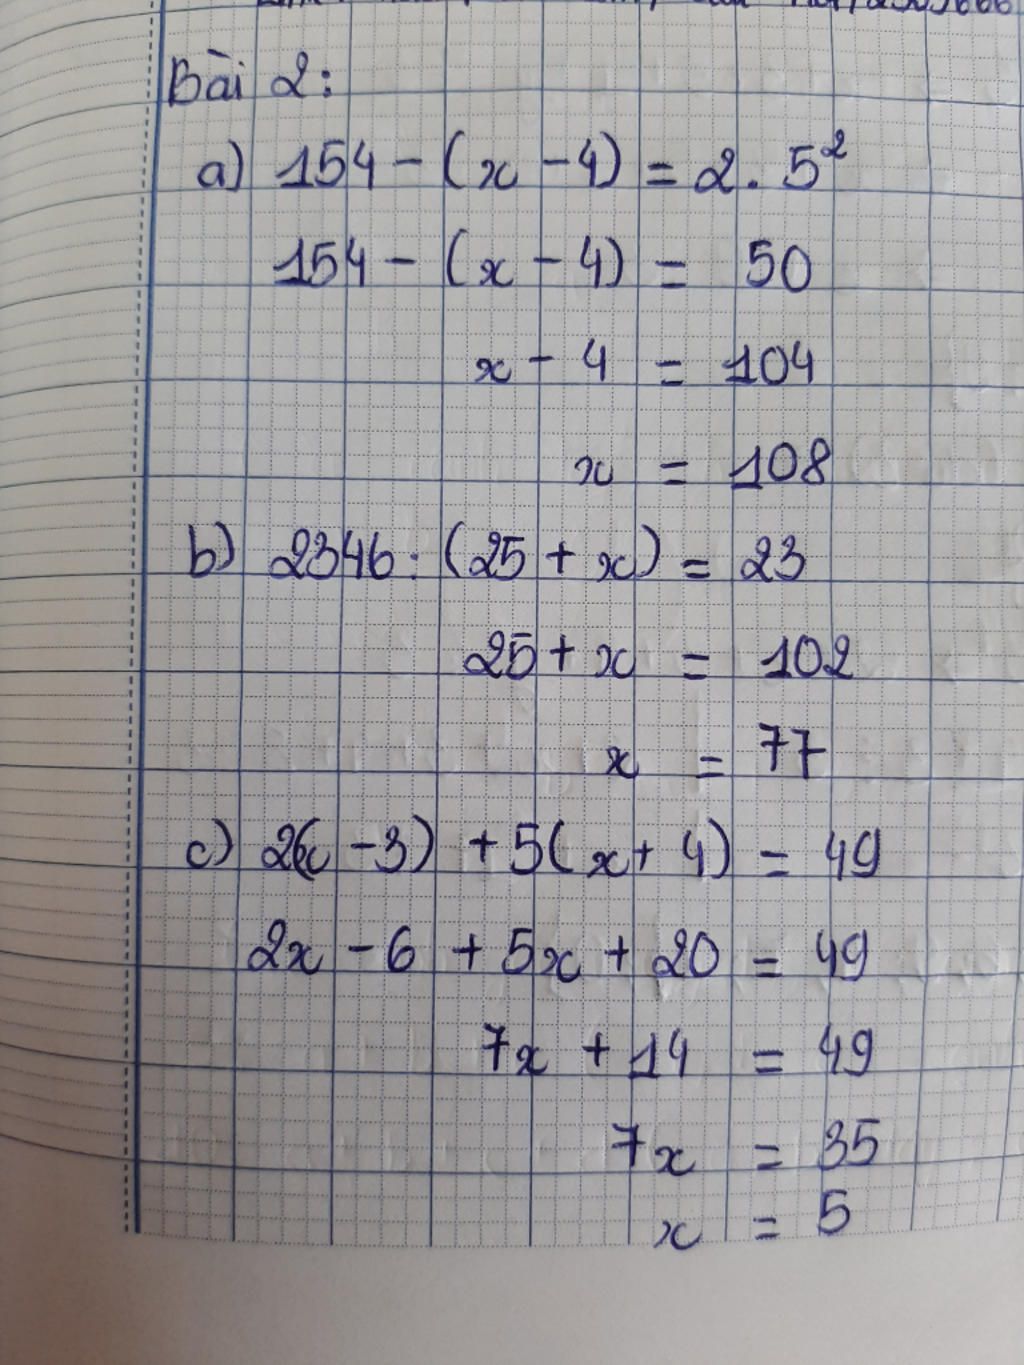 Bài 2:
a) 154 - (x - 4) = 2 . 5²
154 - (x - 4) = 50
x - 4 = 104
x = 108
b) 2346 : (25 + x) = 23
25 + x = 102
x = 77
c) 2(x - 3) + 5(x + 4) = 49
2x - 6 + 5x + 20 = 49
7x + 14 = 49
7x = 35
x = 5